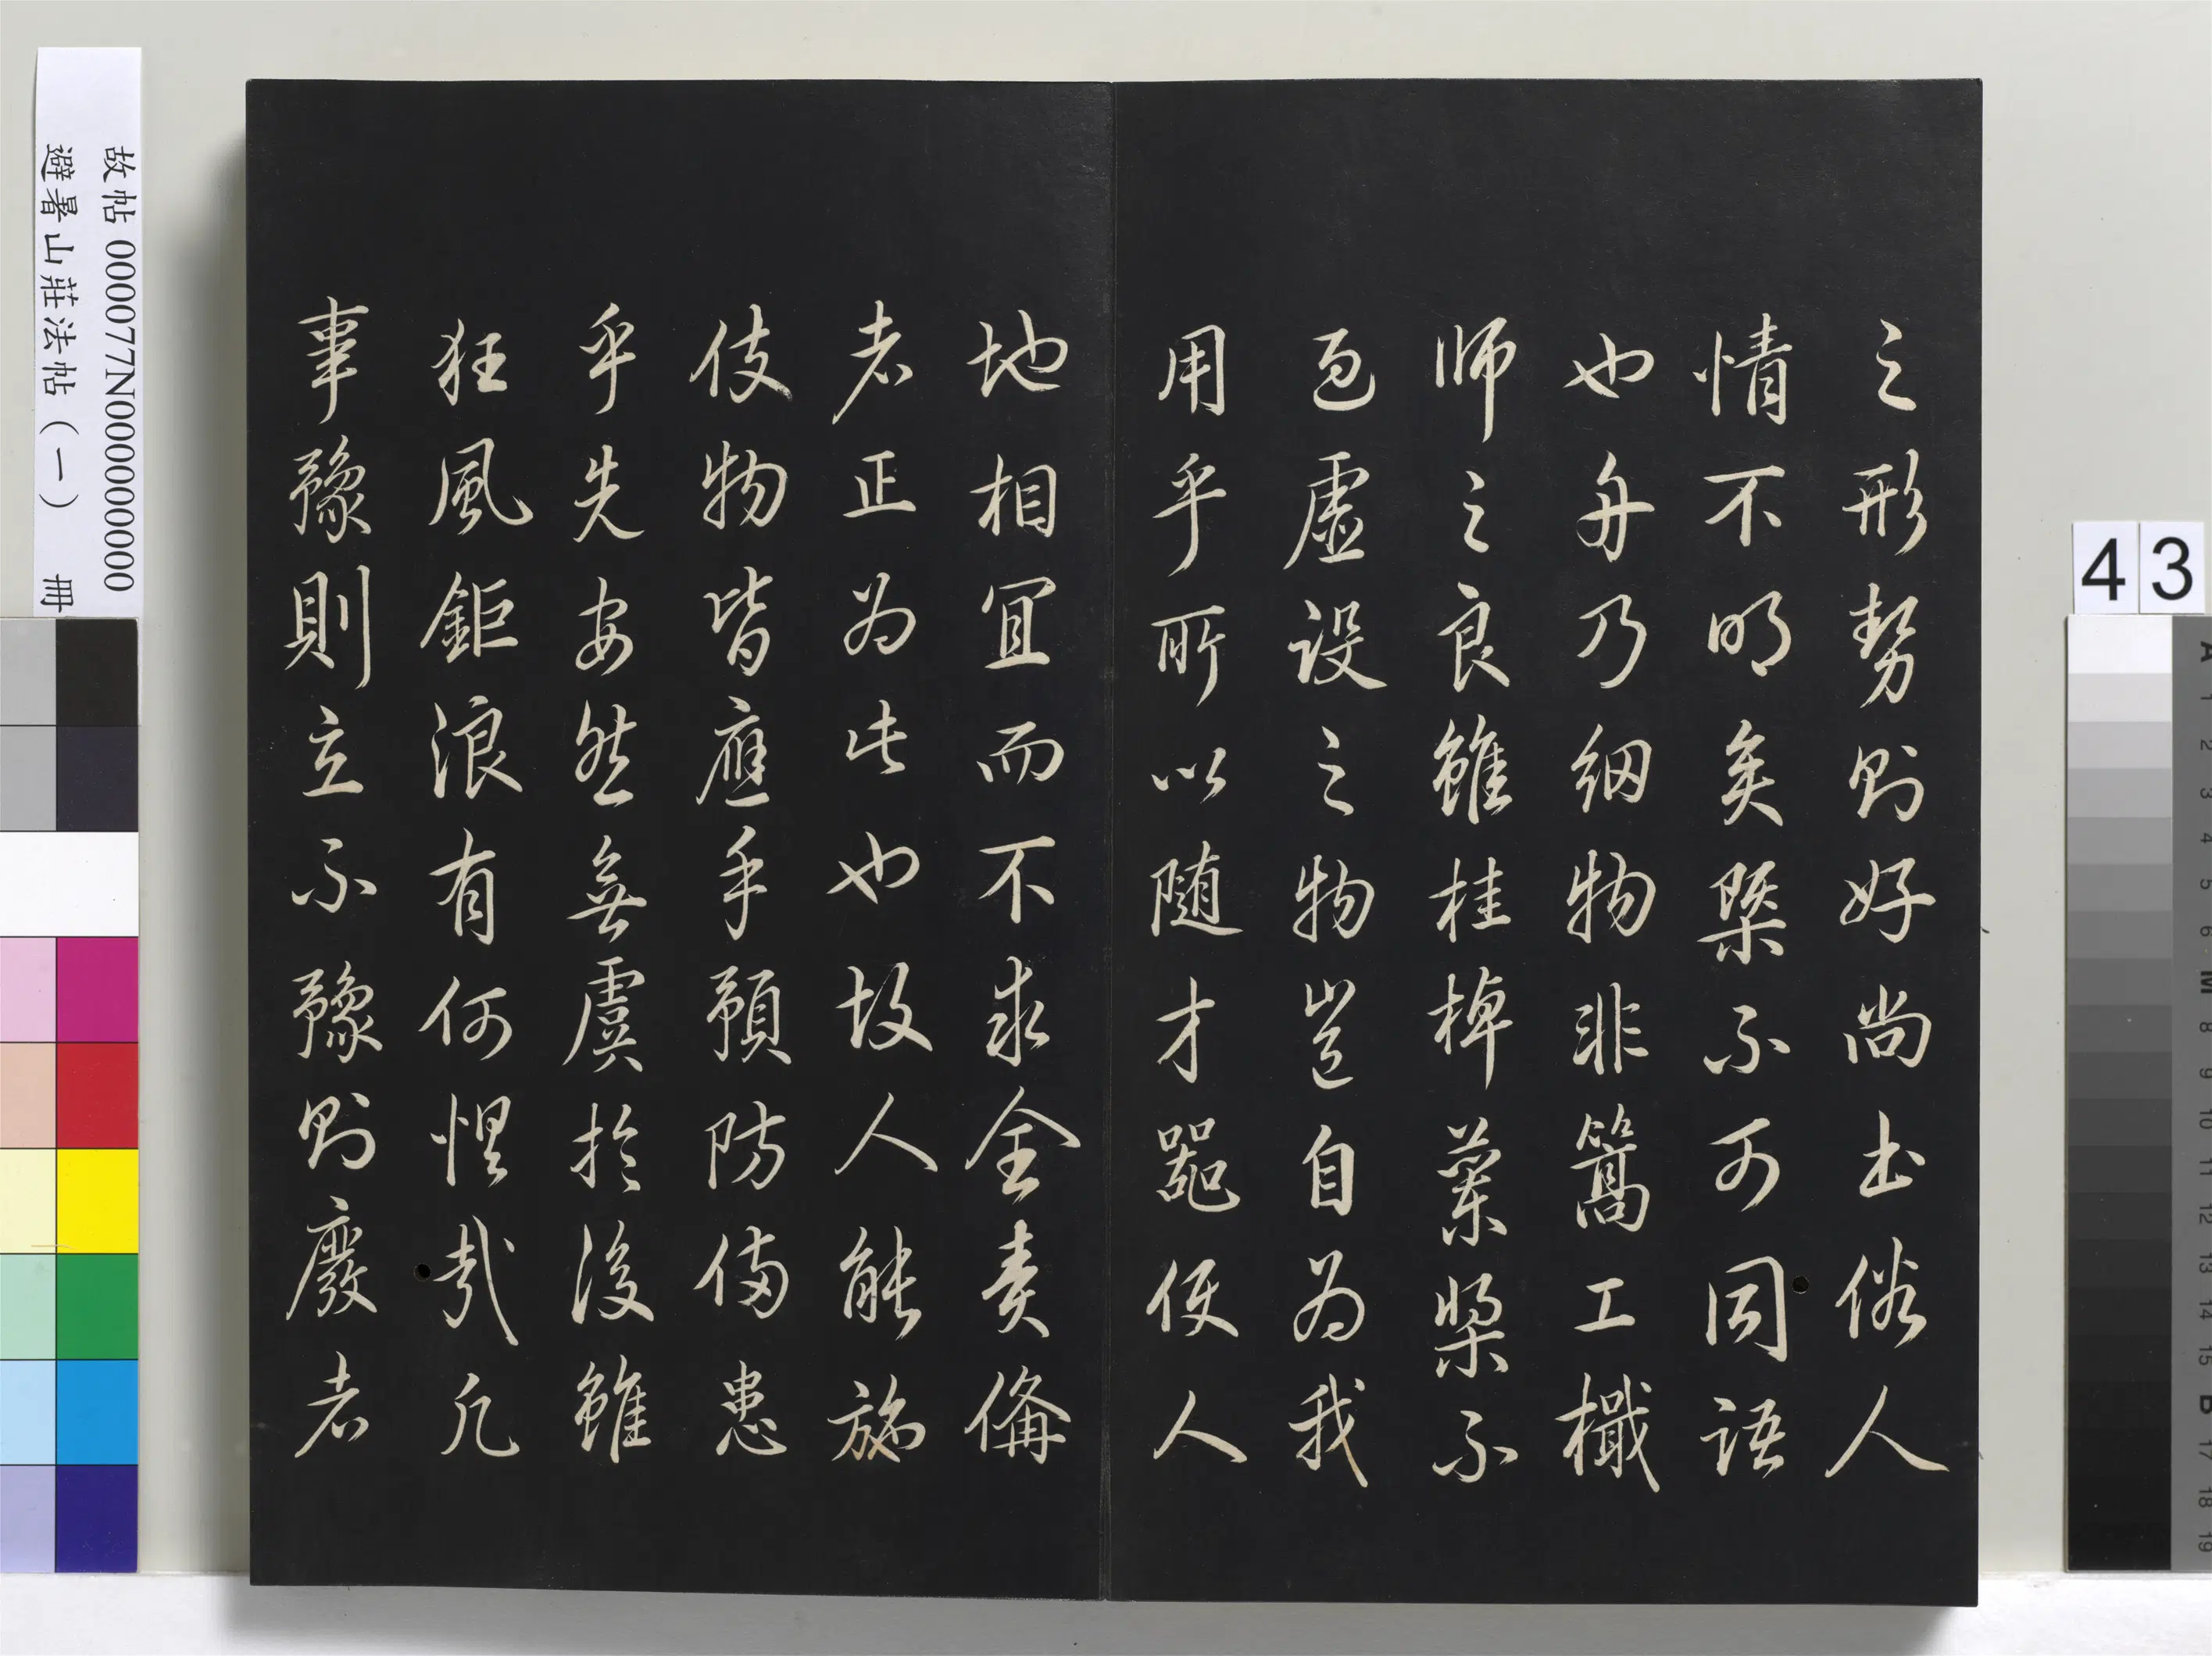 之形勢則好尚土俗人
情不明矣槩不可同語
也舟乃細物非篙工檝
師之良雖桂棹蘭槳不
過虛設之物豈自為我
用乎所以隨才器使人
地相宜而不求全責備
者正為此也故人能施
伎物皆應手預防備患
乎先安然無虞於後雖
狂風鉅浪有何惧哉凡
事豫則立不豫則廢者
故帖 000077N000000000
避暑山莊法帖(一) 冊
43
A 1 2 3 4 5 6 M 8 9 10 11 12 13 14 15 B 17 18 19